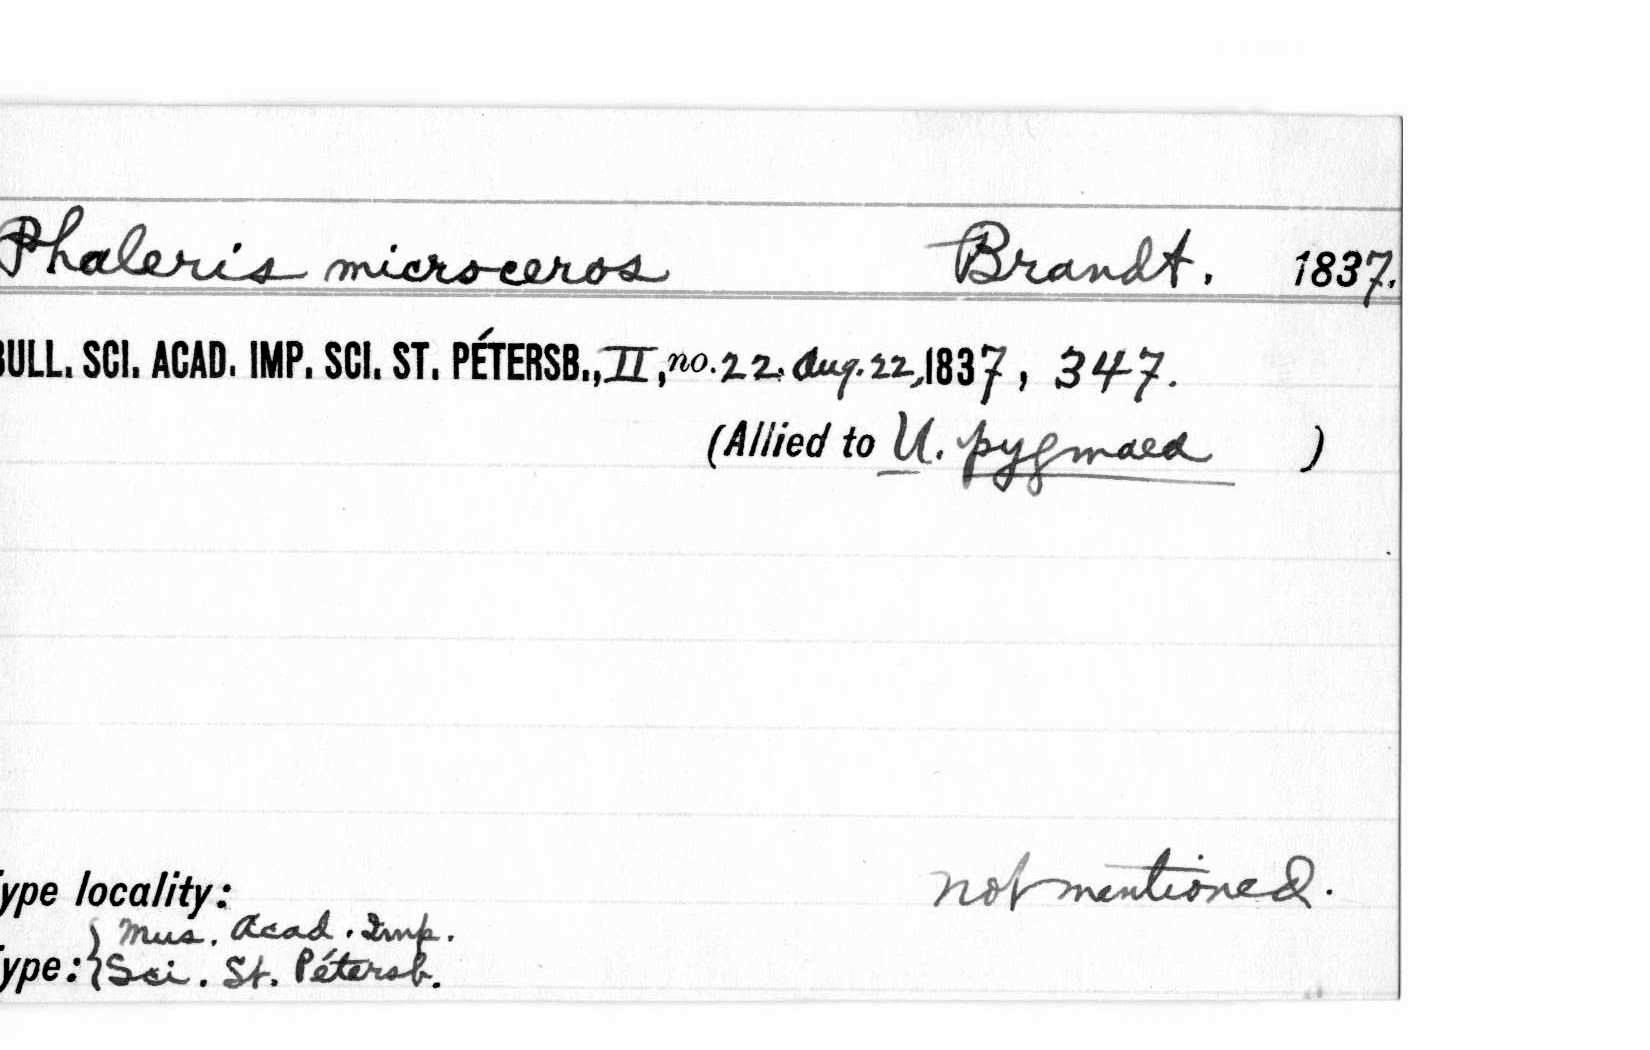 Phaleris microceros Brandt. 1837.
BULL. SCI. ACAD. IMP. SCI. ST. PÉTERSB., II, no. 22, Aug. 22, 1837, 347.
(Allied to U. pygmaea )
ype locality: not mentioned.
Mus. Acad. Imp.
ype: Sci. St. Pétersb.